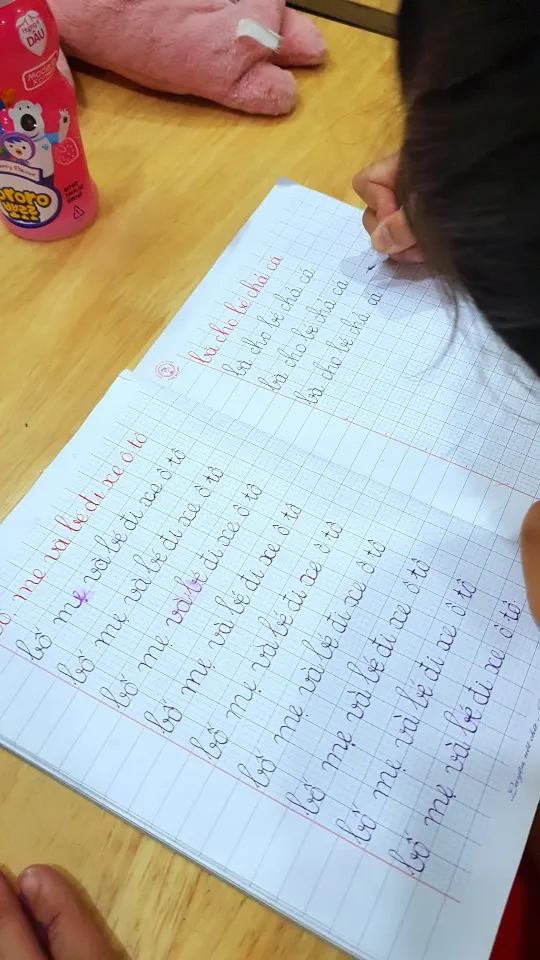 bố, mẹ và bé đi xe ô tô
bố mẹ và bé đi xe ô tô
bố mẹ và bé đi xe ô tô
bố mẹ và bé đi xe ô tô
bố mẹ và bé đi xe ô tô
bố mẹ và bé đi xe ô tô
bố mẹ và bé đi xe ô tô
bố mẹ và bé đi xe ô tô
bố mẹ và bé đi xe ô tô
bố mẹ và bé đi xe ô tô
bà cho bé chả cá
bà cho bé chả cá
bà cho bé chả cá
bà cho bé chả cá
DÂU
ororo
뽀로로